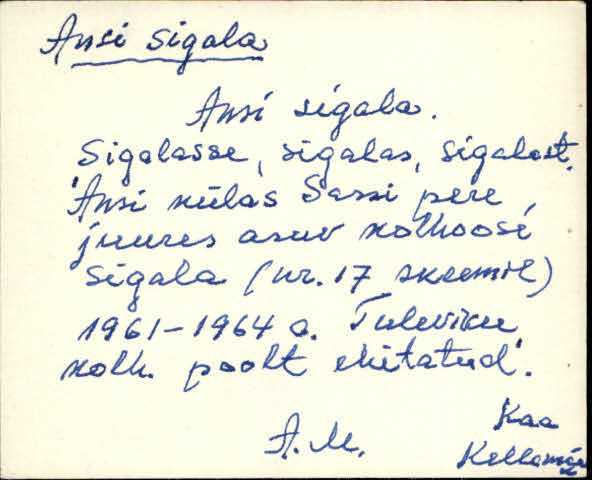 Ansi sigala
Ansi sigala.
Sigalasse, sigalas, sigalast.
'Ansi külas Sassi pere
juures asuv kolhoosi
sigala (nr. 17 skeemil)
1961-1964 a. Tuleviku
kolh. poolt ehitatud'.
A. M.
Kaa
Kellamäe